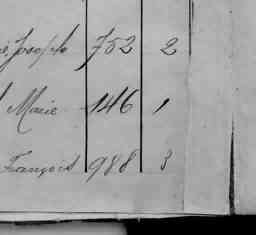 Joseph 752 2
Marie 146 1
François 988 3